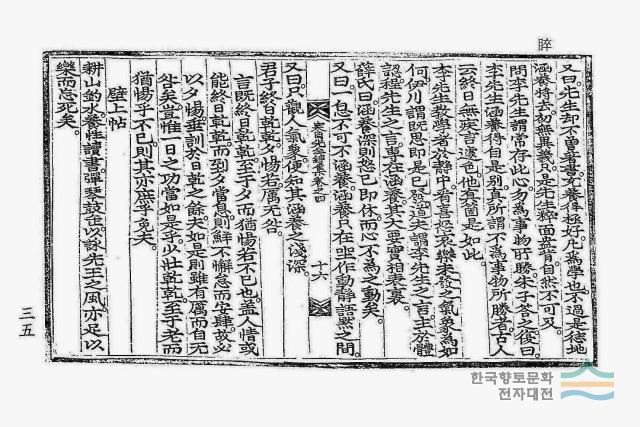 睟
又曰先生却不曾著書充養得極好凡爲學也不過是恁地
涵養將去初無異義只是先生睟面盎背自然不可及
問李先生謂常存此心勿爲事物所勝朱子答之復曰
李先生涵養得自是別眞所謂不爲事物所勝者古人
云終日無疾言遽色他眞箇是如此
李先生敎學者於靜中看喜怒哀樂未發之氣象爲如
何伊川謂旣思卽是已發道夫謂李先生之言主於體
認程先生之言專在涵養其大要實相表裏
薛氏曰涵養深則怒已卽休而心不爲之動矣
又曰一息不可不涵養涵養只在坐作動靜語默之間
十六
又曰只觀人氣象便知其涵養之淺深
君子終日乾乾夕惕若厲无咎
言旣終日乾乾至于夕而猶惕若不已也蓋人情或
能終日乾乾而到夕當怠則鮮不懈怠而安肆故必
以夕惕垂訓於日乾之餘夫如是則雖有厲而自无
咎矣豈惟一日之功當如是乎少壯乾乾至于老而
猶惕乎不已則其亦庶乎免矣
壁上帖
耕山釣水養性讀書彈琴鼓缶以詠先王之風亦足以
樂而忘死矣
三五
한국향토문화
전자대전